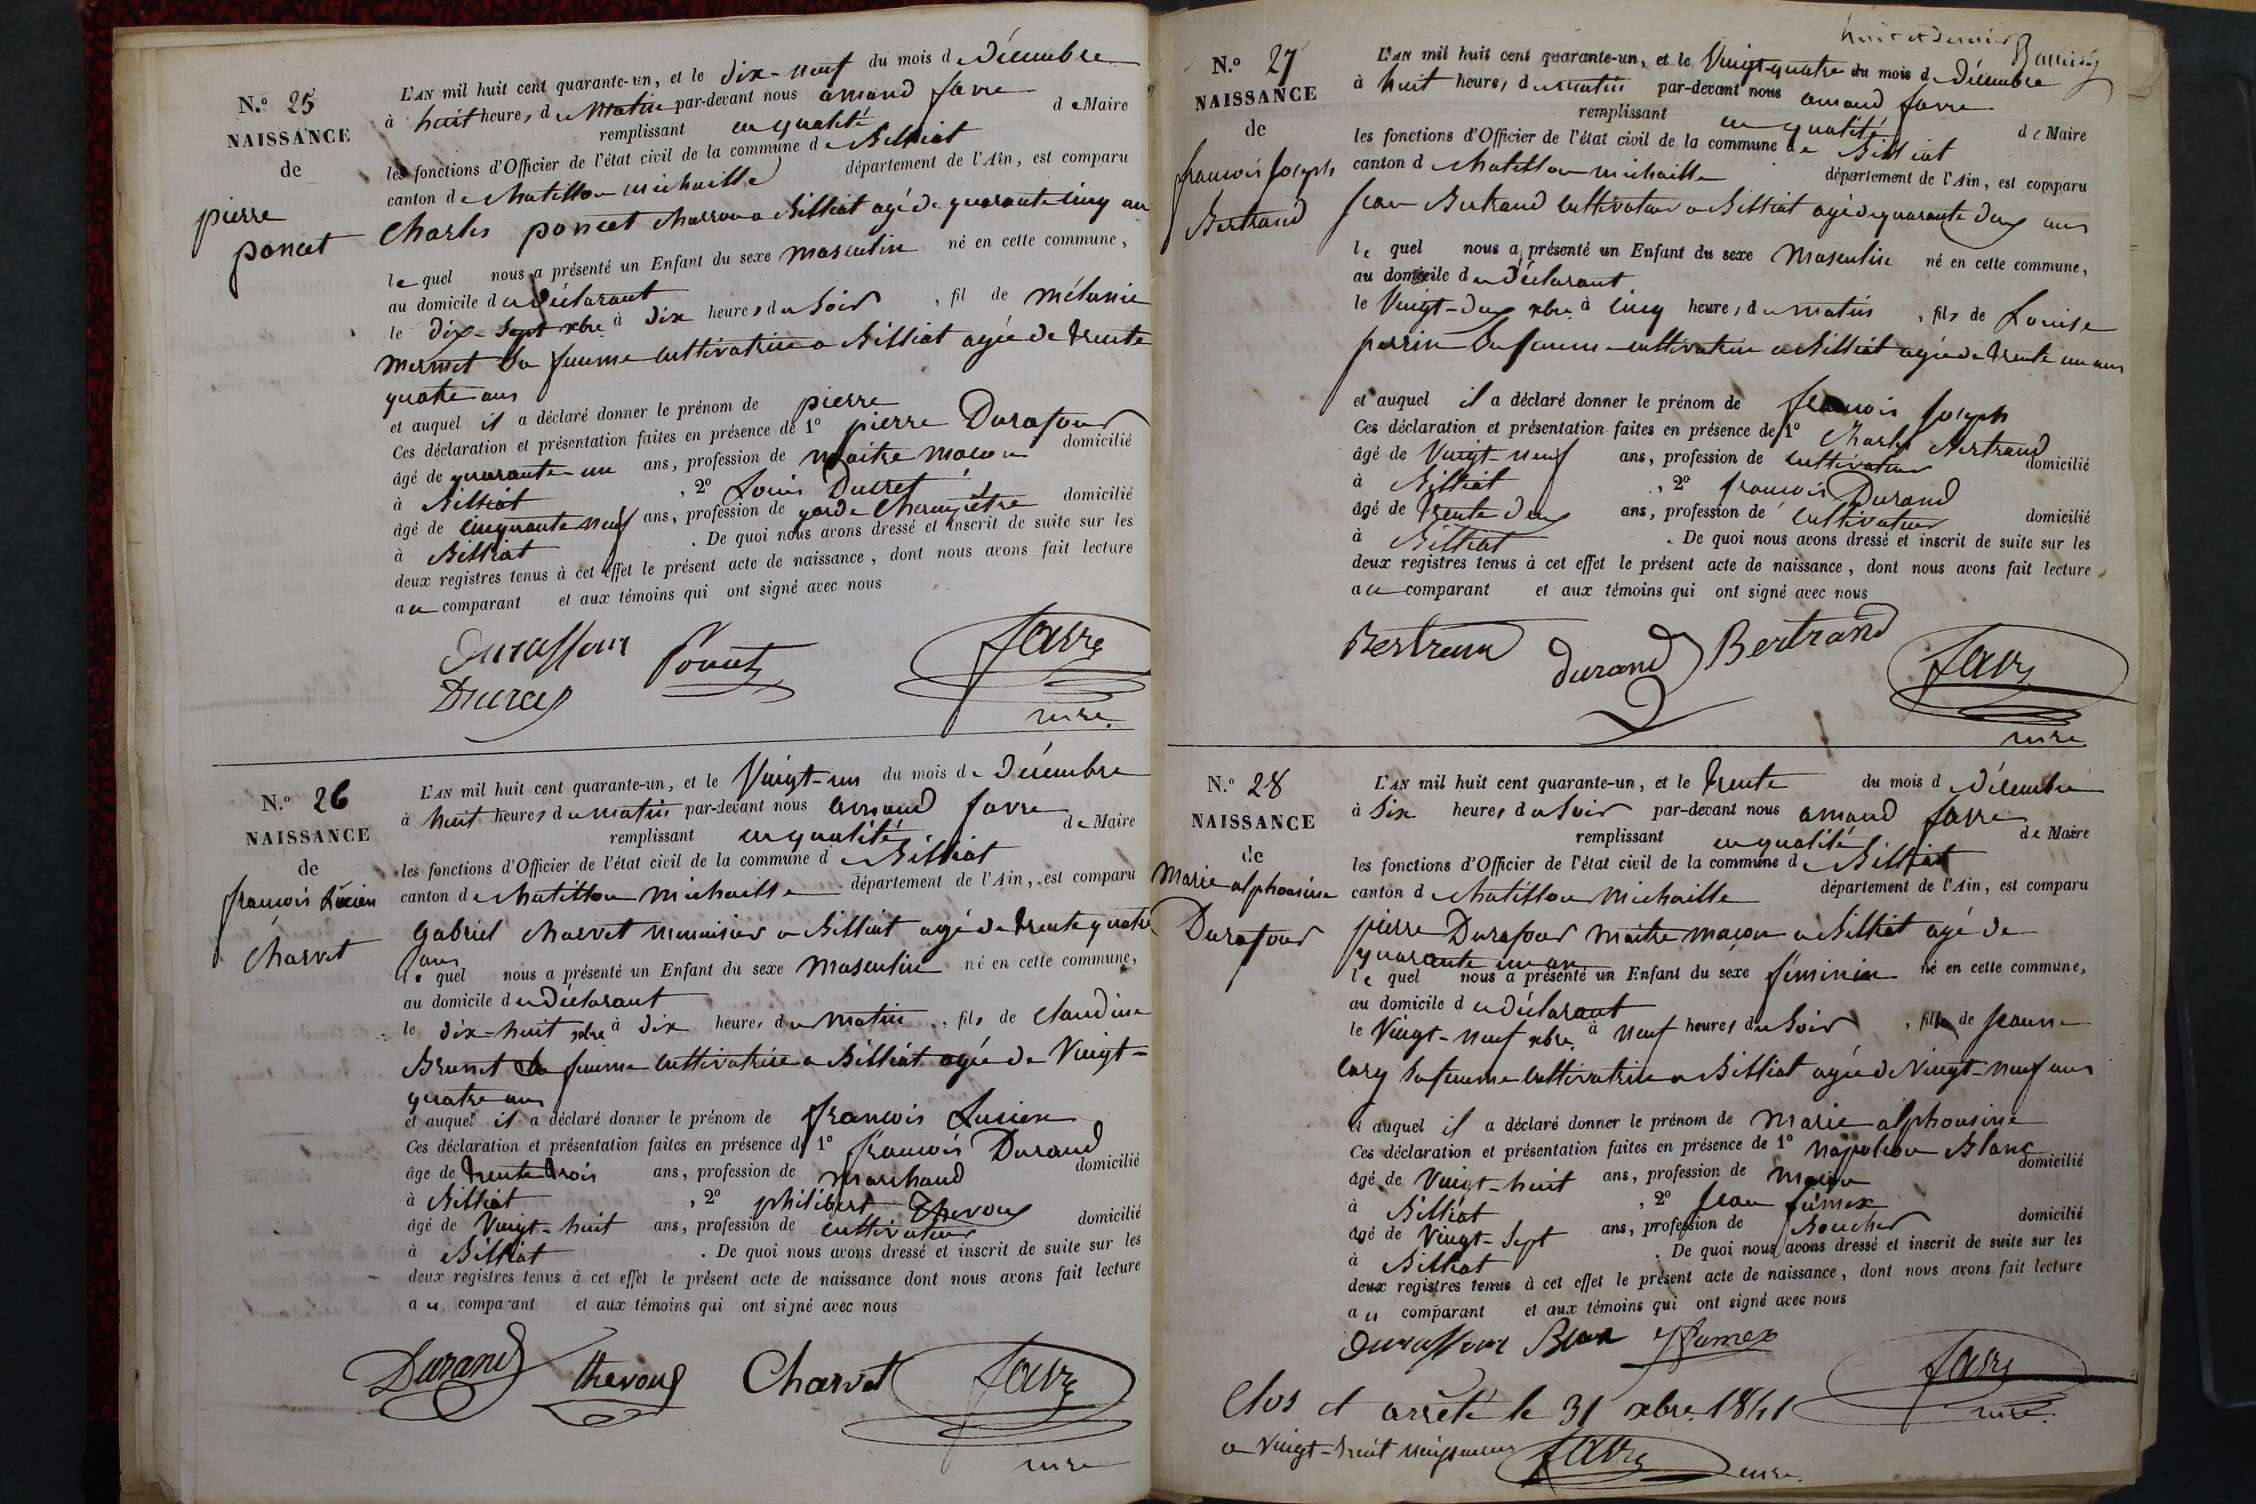 N.o 25
NAISSANCE
de
pierre
poncet
L'AN mil huit cent quarante-un, et le dix-neuf du mois de décembre
à huit heures du matin par-devant nous amand favre
remplissant en qualité de Maire
les fonctions d'Officier de l'état civil de la commune de Billiat
canton de chatillon michaille département de l'Ain, est comparu
Charles poncet charron a Billiat agé de quarante cinq an
le quel nous a présenté un Enfant du sexe masculin né en cette commune,
au domicile du déclarant
le dix-sept xbre à dix heures du soir, fil de mélanie
mermet sa femme cultivatrice a Billiat agée de trente
quatre ans
et auquel il a déclaré donner le prénom de pierre
Ces déclaration et présentation faites en présence de 1o pierre Durafour
âgé de quarante un ans, profession de maitre macon domicilié
à Billiat, 2o Louis Ducret
âgé de cinquante neuf ans, profession de garde champêtre domicilié
à Billiat. De quoi nous avons dressé et inscrit de suite sur les
deux registres tenus à cet effet le présent acte de naissance, dont nous avons fait lecture
au comparant et aux témoins qui ont signé avec nous
Duraffour Poncet favre
Ducret
mre.
N.o 26
NAISSANCE
de
francois Lucien
Charvet
L'AN mil huit cent quarante-un, et le Vingt-un du mois de Décembre
à huit heures du matin par-devant nous amand favre
remplissant en qualité de Maire
les fonctions d'Officier de l'état civil de la commune de Billiat
canton de chatillon michaille département de l'Ain, est comparu
Gabriel charvet menuisier a Billiat agé de trente quatre
ans
le quel nous a présenté un Enfant du sexe masculin né en cette commune,
au domicile du déclarant
le dix-huit xbre à dix heures du matin, fils de claudine
Brunet sa femme cultivatrice a Billiat agée de Vingt-
quatre ans
et auquel il a déclaré donner le prénom de francois Lucien
Ces déclaration et présentation faites en présence de 1o francois Durand
âgé de trente trois ans, profession de marchand domicilié
à Billiat, 2o philibert Thevoux
âgé de Vingt-huit ans, profession de cultivateur domicilié
à Billiat. De quoi nous avons dressé et inscrit de suite sur les
deux registres tenus à cet effet le présent acte de naissance dont nous avons fait lecture
au comparant et aux témoins qui ont signé avec nous
Durand thevoux Charvet favre
mre
huit et dernier
N.o 27
NAISSANCE
de
francois Joseph
Bertrand
L'AN mil huit cent quarante-un, et le Vingt-quatre du mois de décembre
à huit heures du matin par-devant nous amand favre
remplissant en qualité de Maire
les fonctions d'Officier de l'état civil de la commune de Billiat
canton de chatillon michaille département de l'Ain, est comparu
Jean Bertrand cultivateur a Billiat agé de quarante deux ans
le quel nous a présenté un Enfant du sexe masculin né en cette commune,
au domicile du déclarant
le Vingt-deux xbre à cinq heures du matin, fils de Louise
perrin sa femme cultivatrice a Billiat agée de trente un ans
et auquel il a déclaré donner le prénom de francois Joseph
Ces déclaration et présentation faites en présence de 1o Charles Bertrand
âgé de Vingt-neuf ans, profession de cultivateur domicilié
à Billiat, 2o francois Durand
âgé de trente deux ans, profession de cultivateur domicilié
à Billiat. De quoi nous avons dressé et inscrit de suite sur les
deux registres tenus à cet effet le présent acte de naissance, dont nous avons fait lecture
au comparant et aux témoins qui ont signé avec nous
Bertrand durand Bertrand favre
mre
N.o 28
NAISSANCE
de
Marie alphonsine
Durafour
L'AN mil huit cent quarante-un, et le trente du mois de décembre
à six heures du soir par-devant nous amand favre
remplissant en qualité de Maire
les fonctions d'Officier de l'état civil de la commune de Billiat
canton de chatillon michaille département de l'Ain, est comparu
pierre Durafour maitre macon a Billiat agé de
quarante un an
le quel nous a présenté un Enfant du sexe féminin né en cette commune,
au domicile du déclarant
le Vingt-neuf xbre à neuf heures du soir, fille de Jeanne
cary sa femme cultivatrice a Billiat agée de Vingt-neuf ans
et auquel il a déclaré donner le prénom de marie alphonsine
Ces déclaration et présentation faites en présence de 1o napoléon Blanc
âgé de Vingt-huit ans, profession de macon domicilié
à Billiat, 2o Jean fumex
âgé de Vingt-sept ans, profession de Boucher domicilié
à Billiat. De quoi nous avons dressé et inscrit de suite sur les
deux registres tenus à cet effet le présent acte de naissance, dont nous avons fait lecture
au comparant et aux témoins qui ont signé avec nous
Duraffour Blanc fumex favre
mre.
Clos et arrêté le 31 xbre 1841
a vingt-huit naissances favre mre.